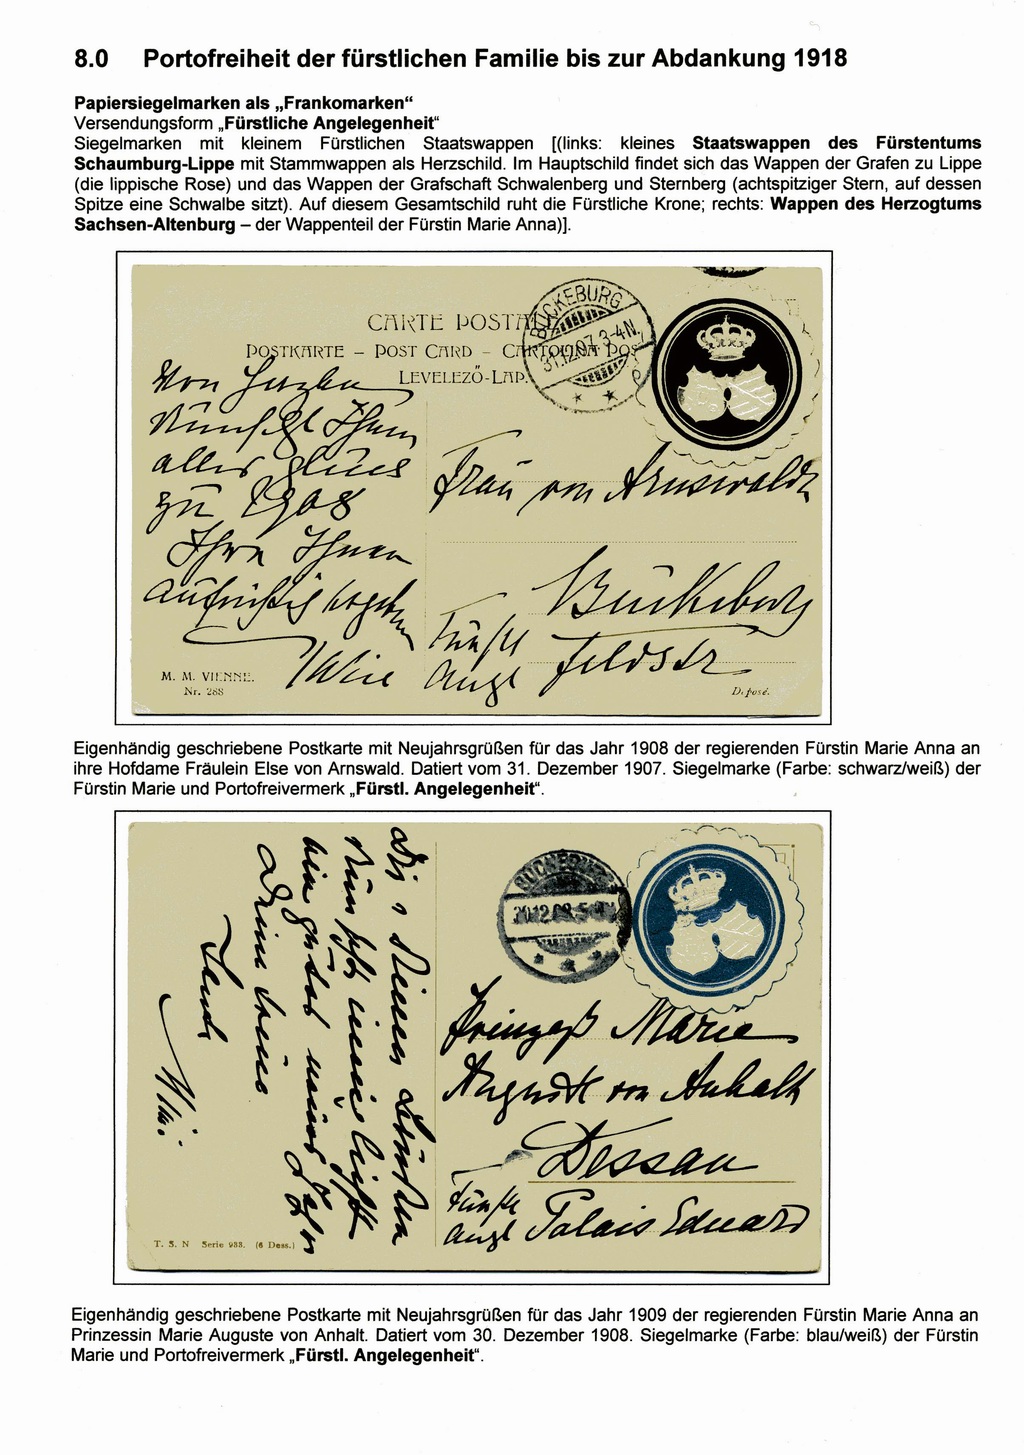 8.0 Portofreiheit der fürstlichen Familie bis zur Abdankung 1918
Papiersiegelmarken als „Frankomarken“
Versendungsform „Fürstliche Angelegenheit“
Siegelmarken mit kleinem Fürstlichen Staatswappen [(links: kleines Staatswappen des Fürstentums
Schaumburg-Lippe mit Stammwappen als Herzschild. Im Hauptschild findet sich das Wappen der Grafen zu Lippe
(die lippische Rose) und das Wappen der Grafschaft Schwalenberg und Sternberg (achtspitziger Stern, auf dessen
Spitze eine Schwalbe sitzt). Auf diesem Gesamtschild ruht die Fürstliche Krone; rechts: Wappen des Herzogtums
Sachsen-Altenburg – der Wappenteil der Fürstin Marie Anna)].
BÜCKEBURG
31.12.07.3-4N.
CARTE POSTALE
POSTKARTE – POST CARD – CARTOLINA POS
LEVELEZŐ-LAP.
Von Herzen
Wünscht Ihnen
alles Glück
zu 1908
Ihre Ihnen
aufrichtig ergebene
Frau von Arnswaldt
Bückeburg
Fürstl
Angl
Feldstr
M. M. VIENNE.
Nr. 288
Déposé.
Eigenhändig geschriebene Postkarte mit Neujahrsgrüßen für das Jahr 1908 der regierenden Fürstin Marie Anna an
ihre Hofdame Fräulein Else von Arnswald. Datiert vom 31. Dezember 1907. Siegelmarke (Farbe: schwarz/weiß) der
Fürstin Marie und Portofreivermerk „Fürstl. Angelegenheit“.
BÜCKEBURG
30.12.08.5-6N
wünscht innigst
ein gutes neues Jahr
Deine treue
Tante
Prinzeß Marie
Auguste von Anhalt
Dessau
Fürstl
Angl
Palais Eduard
T. S. N Serie 933. (6 Dess.)
Eigenhändig geschriebene Postkarte mit Neujahrsgrüßen für das Jahr 1909 der regierenden Fürstin Marie Anna an
Prinzessin Marie Auguste von Anhalt. Datiert vom 30. Dezember 1908. Siegelmarke (Farbe: blau/weiß) der Fürstin
Marie und Portofreivermerk „Fürstl. Angelegenheit“.